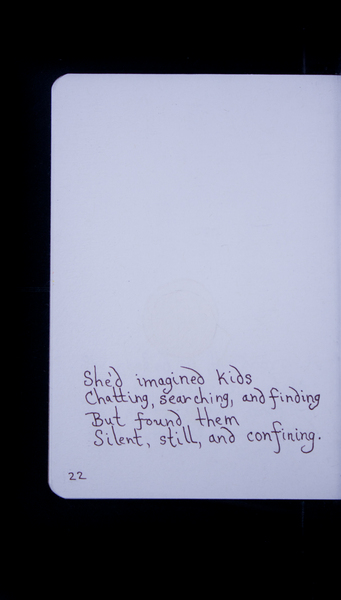 She'd imagined kids
Chatting, searching, and finding
But found them
Silent, still, and confining.
22